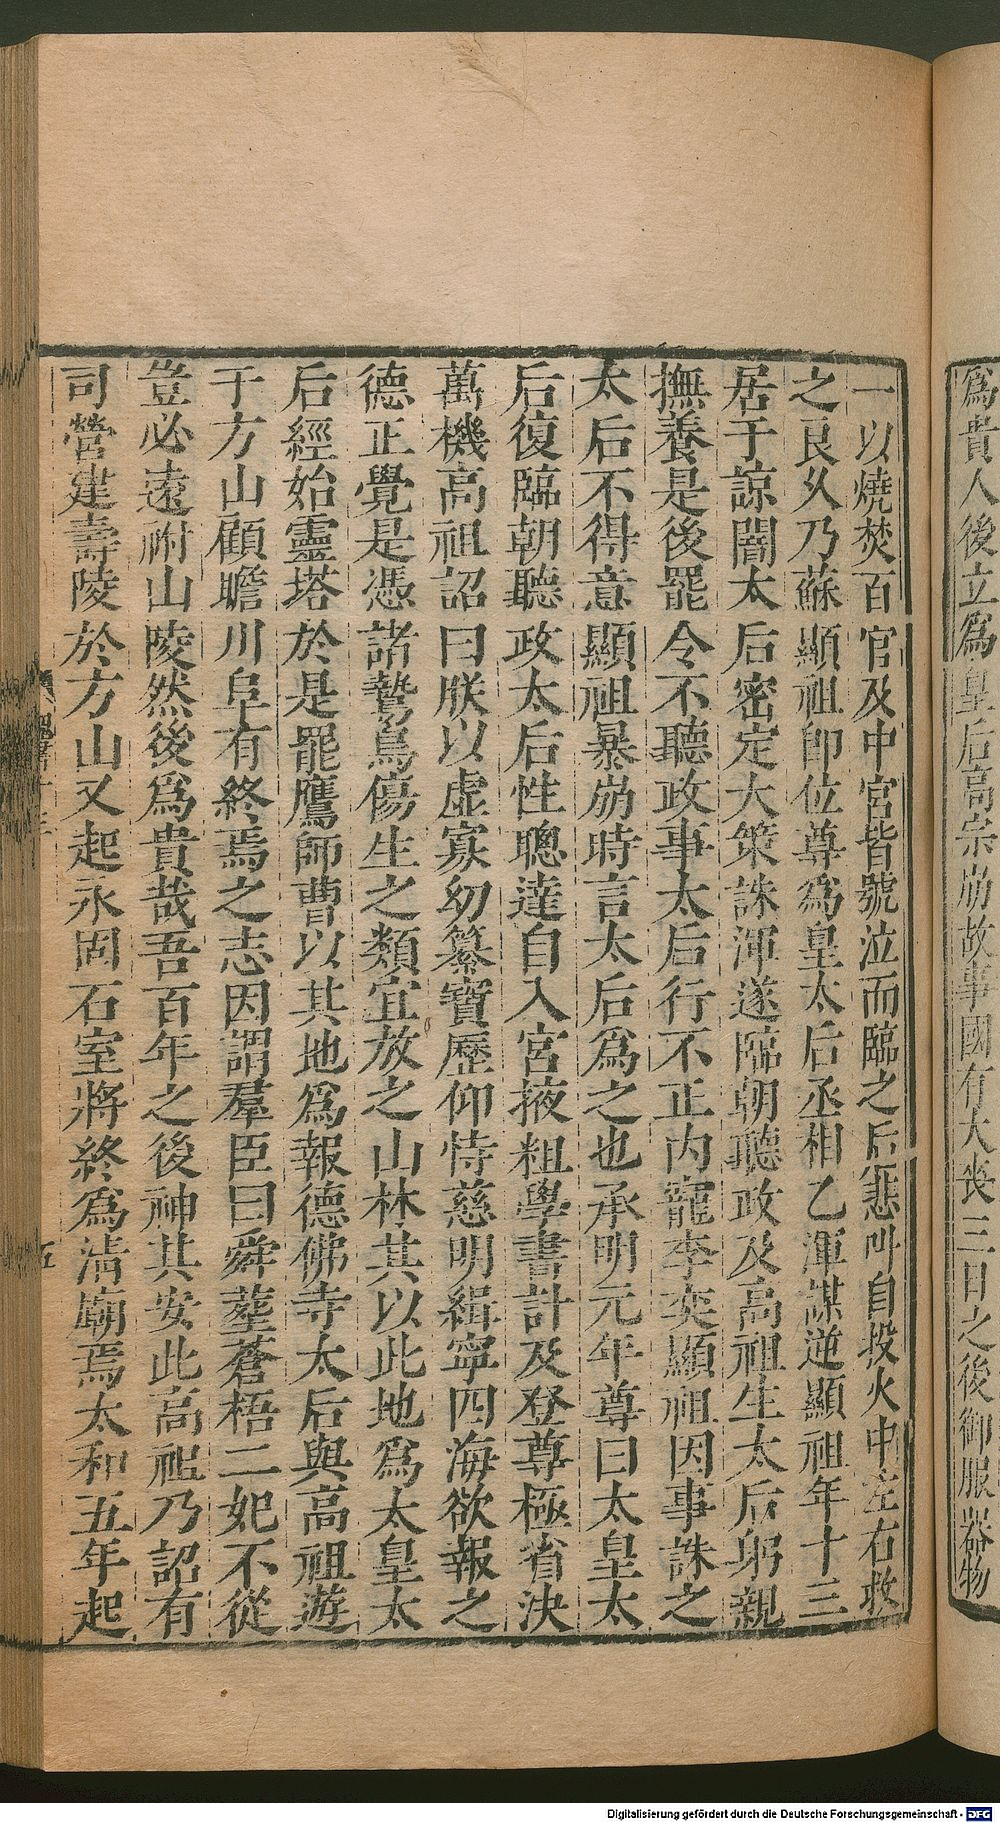 爲貴人後立爲皇后高宗崩故事國有大喪三日之後御服器物
一以燒焚百官及中宮皆號泣而臨之后悲叫自投火中左右救
之良久乃蘇顯祖即位尊爲皇太后丞相乙渾謀逆顯祖年十三
居于諒闇太后密定大策誅渾遂臨朝聽政及高祖生太后躬親
撫養是後罷令不聽政事太后行不正内寵李奕顯祖因事誅之
太后不得意顯祖暴崩時言太后爲之也承明元年尊曰太皇太
后復臨朝聽政太后性聰達自入宮掖粗學書計及登尊極省決
萬機高祖詔曰朕以虚寡幼纂寶歷仰恃慈明緝寧四海欲報之
德正覺是憑諸鷙鳥傷生之類宜放之山林其以此地爲太皇太
后經始靈塔於是罷鷹師曹以其地爲報德佛寺太后與高祖遊
于方山顧瞻川阜有終焉之志因謂羣臣曰舜葬蒼梧二妃不從
豈必遠祔山陵然後爲貴哉吾百年之後神其安此高祖乃詔有
司營建壽陵於方山又起永固石室將終爲清廟焉太和五年起
五
Digitalisierung gefördert durch die Deutsche Forschungsgemeinschaft - DFG